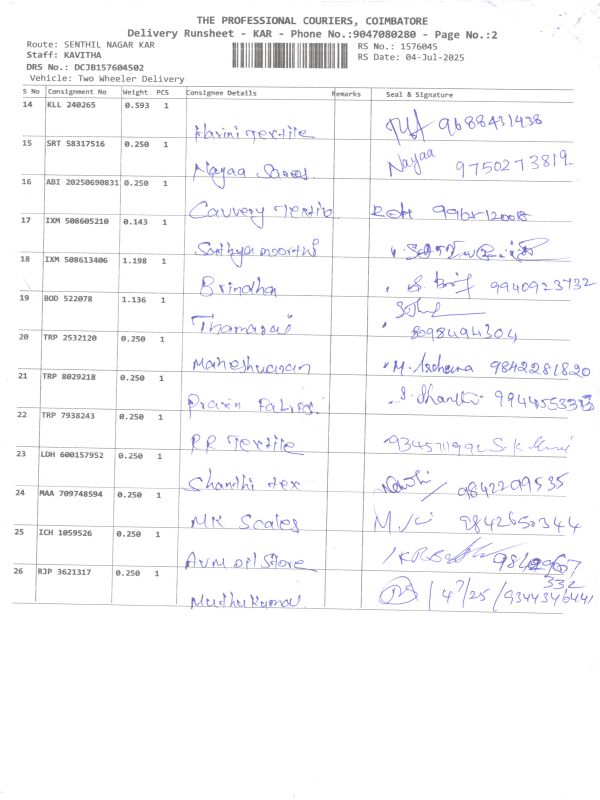 THE PROFESSIONAL COURIERS, COIMBATORE
Delivery Runsheet - KAR - Phone No.:9047080280 - Page No.:2
Route: SENTHIL NAGAR KAR RS No.: 1576045
Staff: KAVITHA RS Date: 04-Jul-2025
DRS No.: DCJB157604502
Vehicle: Two Wheeler Delivery
S No Consignment No Weight PCS Consignee Details Remarks Seal & Signature
14 KLL 240265 0.593 1
Harini Textile 9688431438
15 SRT 58317516 0.250 1
Nayaa Sarees Nayaa 9750273819
16 ABI 20250690831 0.250 1
Cauvery Textile
17 IXM 508605210 0.143 1
Sathyamoorthi
18 IXM 508613406 1.198 1
Brindha 9940923732
19 BOD 522078 1.136 1
Thamarai 8098494304
20 TRP 2532120 0.250 1
Maheshwaran 9842281820
21 TRP 8029218 0.250 1
Pravin Fabrics
22 TRP 7938243 0.250 1
RR Textile
23 LDH 600157952 0.250 1
Shandhi tex 9842299535
24 MAA 709748594 0.250 1
MK Scales 9842650344
25 ICH 1059526 0.250 1
AVM oil Store
26 RJP 3621317 0.250 1
Muthukumar